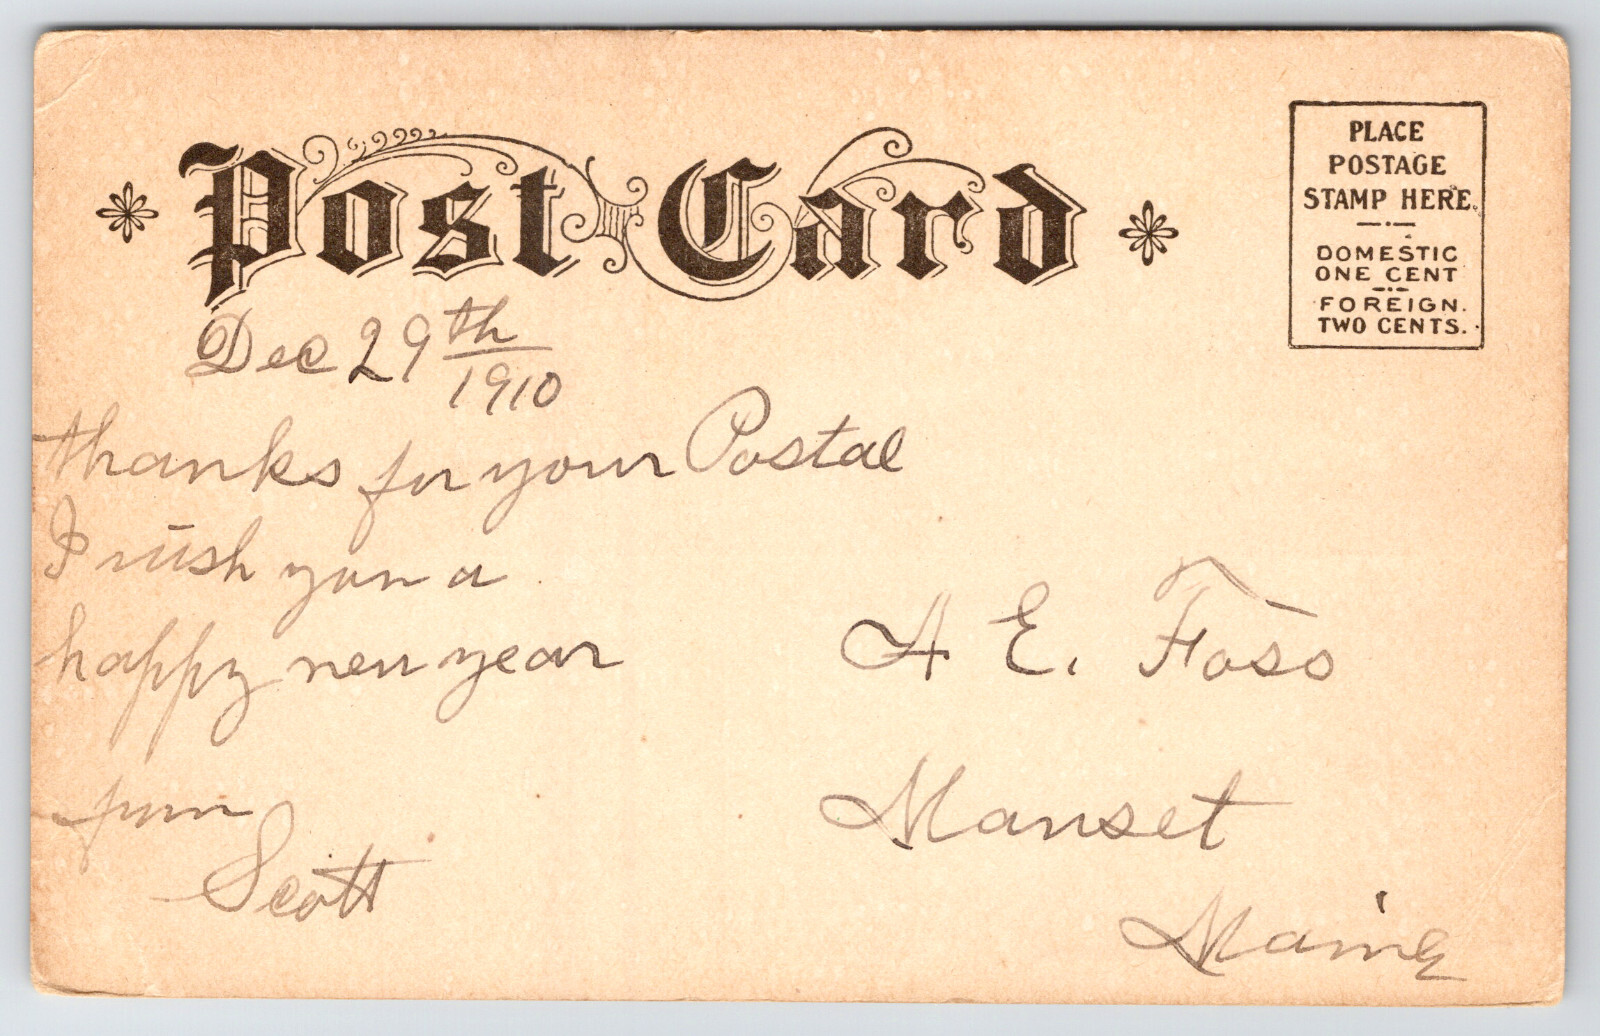 Post Card
PLACE
POSTAGE
STAMP HERE.
DOMESTIC
ONE CENT
FOREIGN.
TWO CENTS.
Dec 29th
1910
thanks for your Postal
I wish you a
happy new year
from
Scott
A E. Foss
Manset
Maine